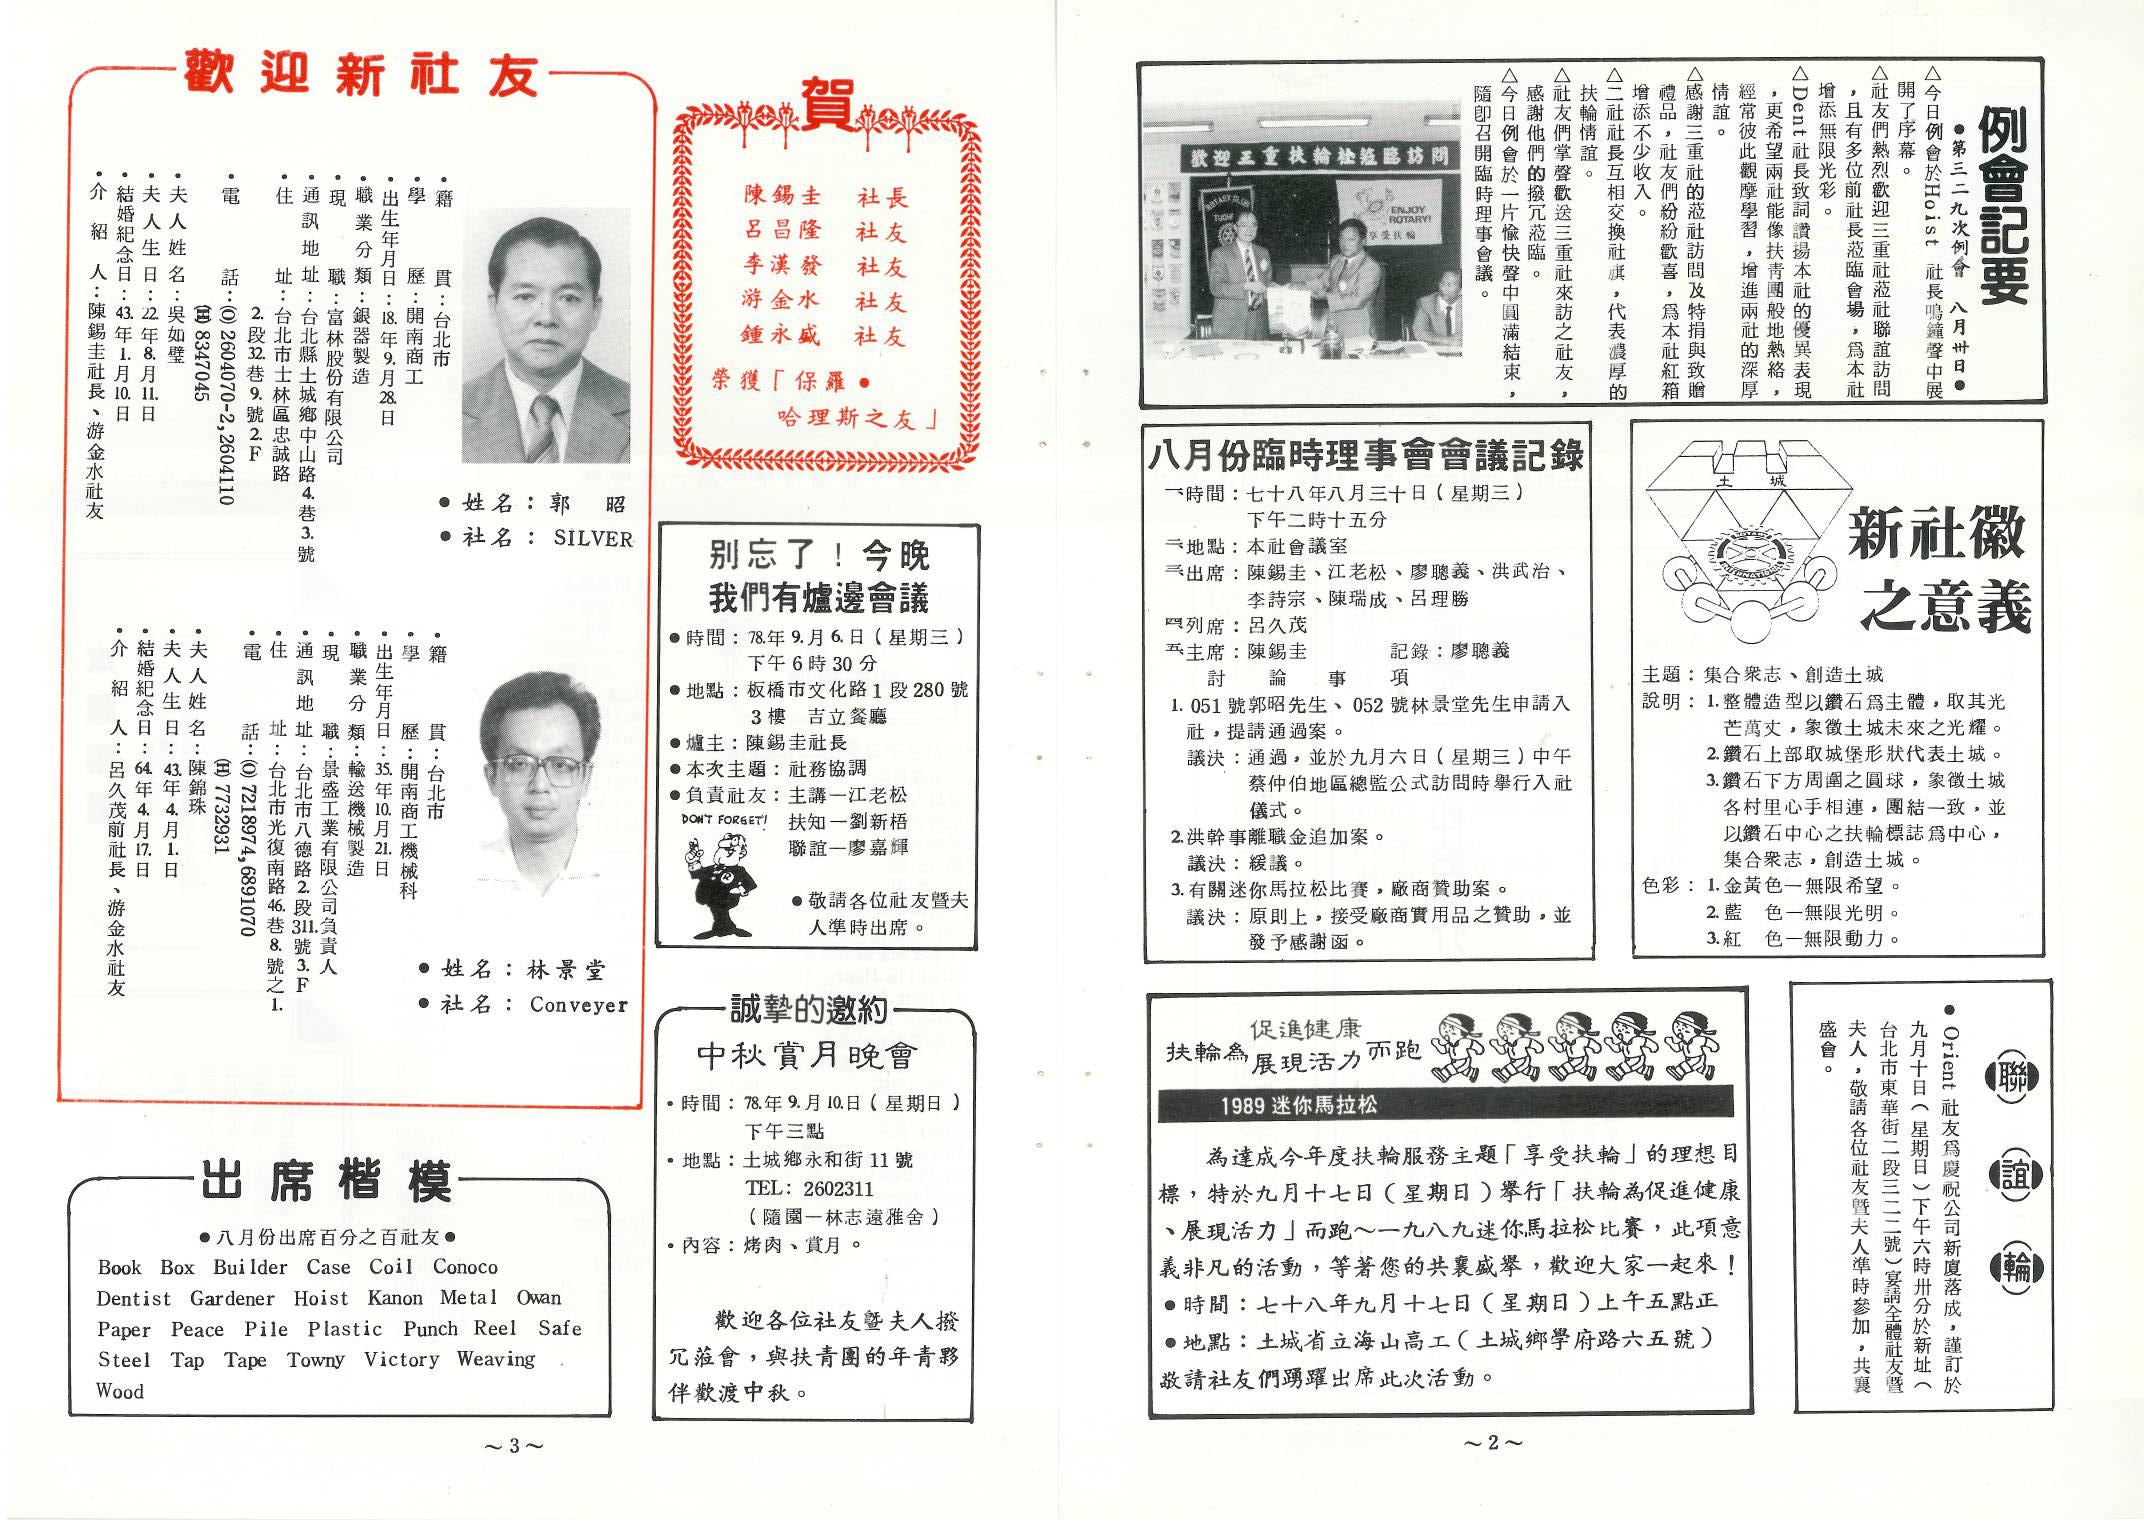 例會記要
●第三二九次例會　八月卅日●
△今日例會於Hoist 社長鳴鐘聲中展
開了序幕。
△社友們熱烈歡迎三重社蒞社聯誼訪問
，且有多位前社長蒞臨會場，爲本社
增添無限光彩。
△Dent社長致詞讚揚本社的優異表現
，更希望兩社能像扶青團般地熱絡，
經常彼此觀摩學習，增進兩社的深厚
情誼。
△感謝三重社的蒞社訪問及特捐與致贈
禮品，社友們紛紛歡喜，爲本社紅箱
增添不少收入。
△二社社長互相交換社旗，代表濃厚的
扶輪情誼。
△社友們掌聲歡送三重社來訪之社友，
感謝他們的撥冗蒞臨。
△今日例會於一片愉快聲中圓滿結束，
隨卽召開臨時理事會議。
歡迎三重扶輪社蒞臨訪問
ROTARY CLUB
TUCHENG
ENJOY
ROTARY!
享受扶輪
新社徽
之意義
土城
主題：集合衆志、創造土城
說明：1.整體造型以鑽石爲主體，取其光
芒萬丈，象徵土城未來之光耀。
2.鑽石上部取城堡形狀代表土城。
3.鑽石下方周圍之圓球，象徵土城
各村里心手相連，團結一致，並
以鑽石中心之扶輪標誌爲中心，
集合衆志，創造土城。
色彩：1.金黃色—無限希望。
2.藍　色—無限光明。
3.紅　色—無限動力。
八月份臨時理事會會議記錄
一時間：七十八年八月三十日（星期三）
下午二時十五分
二地點：本社會議室
三出席：陳錫圭、江老松、廖聰義、洪武治、
李詩宗、陳瑞成、呂理勝
四列席：呂久茂
五主席：陳錫圭　　記錄：廖聰義
討　論　事　項
1. 051號郭昭先生、052號林景堂先生申請入
社，提請通過案。
議決：通過，並於九月六日（星期三）中午
蔡仲伯地區總監公式訪問時舉行入社
儀式。
2.洪幹事離職金追加案。
議決：緩議。
3.有關迷你馬拉松比賽，廠商贊助案。
議決：原則上，接受廠商實用品之贊助，並
發予感謝函。
聯誼輪
●Orient 社友爲慶祝公司新廈落成，謹訂於
九月十日（星期日）下午六時卅分於新址（
台北市東華街二段三二二號）宴請全體社友暨
夫人，敬請各位社友暨夫人準時參加，共襄
盛會。
扶輪為 促進健康
展現活力 而跑
1989 迷你馬拉松
為達成今年度扶輪服務主題「享受扶輪」的理想目
標，特於九月十七日（星期日）舉行「扶輪為促進健康
、展現活力」而跑～一九八九迷你馬拉松比賽，此項意
義非凡的活動，等著您的共襄盛舉，歡迎大家一起來！
●時間：七十八年九月十七日（星期日）上午五點正
●地點：土城省立海山高工（土城鄉學府路六五號）
敬請社友們踴躍出席此次活動。
～2～
賀
陳錫圭　社長
呂昌隆　社友
李漢發　社友
游金水　社友
鍾永盛　社友
榮獲「保羅●
哈理斯之友」
歡迎新社友
●姓名：郭　昭
●社名：SILVER
•籍　　貫：台北市
•學　　歷：開南商工
•出生年月日：18.年9.月28.日
•職業分類：銀器製造
•現　　職：富林股份有限公司
•通訊地址：台北縣土城鄉中山路4.巷3.號
•住　　址：台北市士林區忠誠路
2.段32.巷9.號2.F
•電　　話：(O) 2604070-2,2604110
(H) 8347045
•夫人姓名：吳如璧
•夫人生日：22.年8.月11.日
•結婚紀念日：43.年1.月10.日
•介紹人：陳錫圭社長、游金水社友
●姓名：林景堂
●社名：Conveyer
•籍　　貫：台北市
•學　　歷：開南商工機械科
•出生年月日：35.年10.月21.日
•職業分類：輸送機械製造
•現　　職：景盛工業有限公司負責人
•通訊地址：台北市八德路2.段311.號3.F
•住　　址：台北市光復南路46.巷8.號之1.
•電　　話：(O) 7218974,6891070
(H) 7732931
•夫人姓名：陳錦珠
•夫人生日：43.年4.月1.日
•結婚紀念日：64.年4.月17.日
•介紹人：呂久茂前社長、游金水社友
別忘了！今晚
我們有爐邊會議
●時間：78.年9.月6.日（星期三）
下午6時30分
●地點：板橋市文化路1段280號
3樓　吉立餐廳
●爐主：陳錫圭社長
●本次主題：社務協調
●負責社友：主講—江老松
扶知—劉新梧
聯誼—廖嘉輝
DON'T FORGET!
●敬請各位社友暨夫
人準時出席。
誠摯的邀約
中秋賞月晚會
•時間：78.年9.月10.日（星期日）
下午三點
•地點：土城鄉永和街11號
TEL: 2602311
（隨園—林志遠雅舍）
•內容：烤肉、賞月。
歡迎各位社友暨夫人撥
冗蒞會，與扶青團的年青夥
伴歡渡中秋。
出席楷模
●八月份出席百分之百社友●
Book Box Builder Case Coil Conoco
Dentist Gardener Hoist Kanon Metal Owan
Paper Peace Pile Plastic Punch Reel Safe
Steel Tap Tape Towny Victory Weaving
Wood
～3～